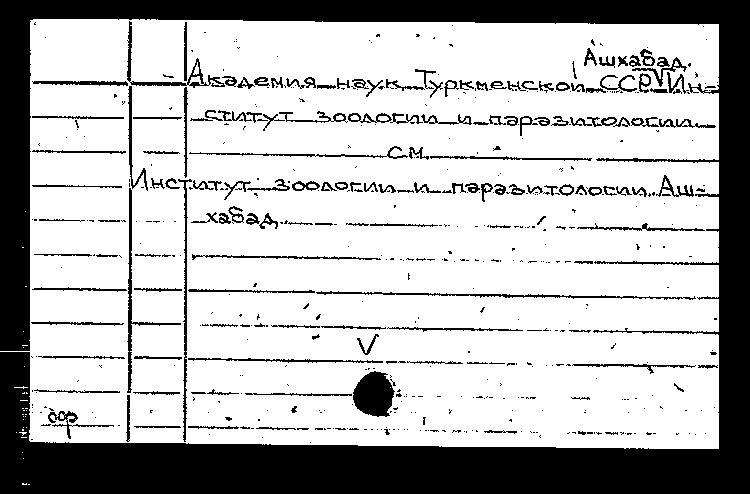 Ашхабад.
Академия наук Туркменской ССР. Ин-
ститут зоологии и паразитологии
см.
Институт зоологии и паразитологии. Аш-
хабад.
V